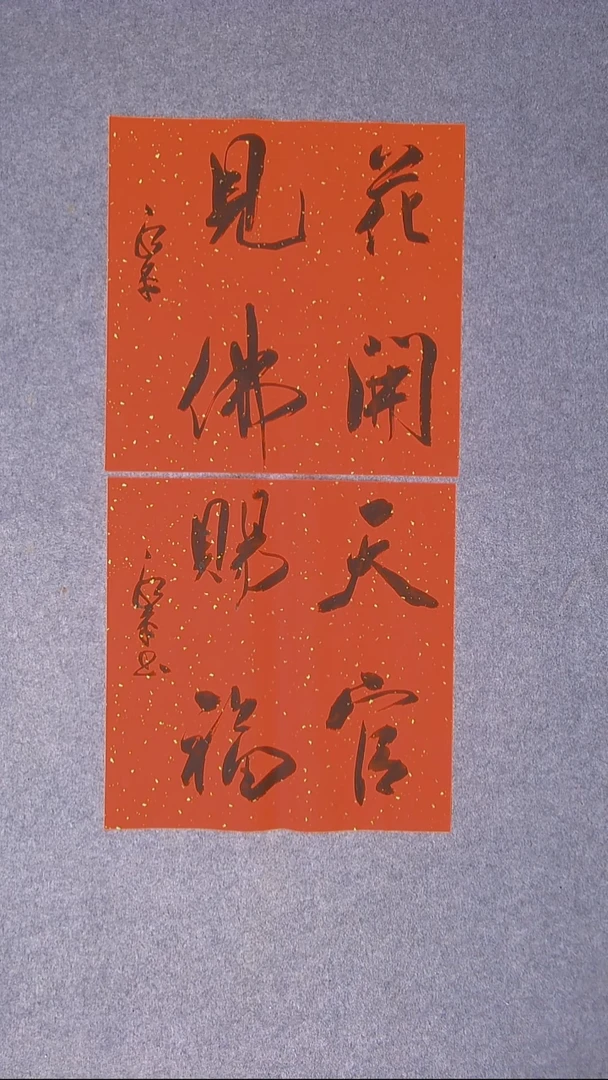 花開
見佛
天官
賜福